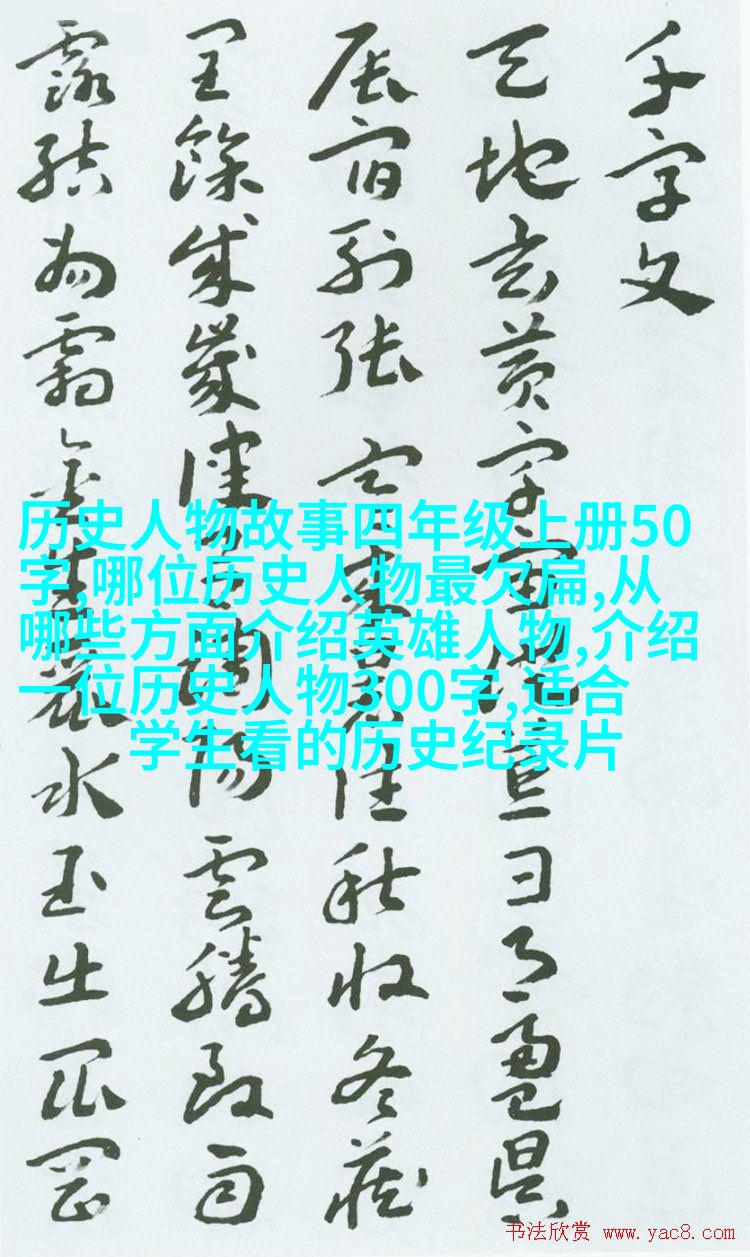 千字文
天地玄黃宇宙洪荒日月盈昃
辰宿列張寒來暑往秋收冬藏
閏餘成歲律呂調陽雲騰致雨
露結為霜金生麗水玉出崑岡
历史人物故事四年级上册50
字,哪位历史人物最欠扁,从
哪些方面介绍英雄人物,介绍
一位历史人物300字,适合
学生看的历史纪录片
书法欣赏 www.yac8.com